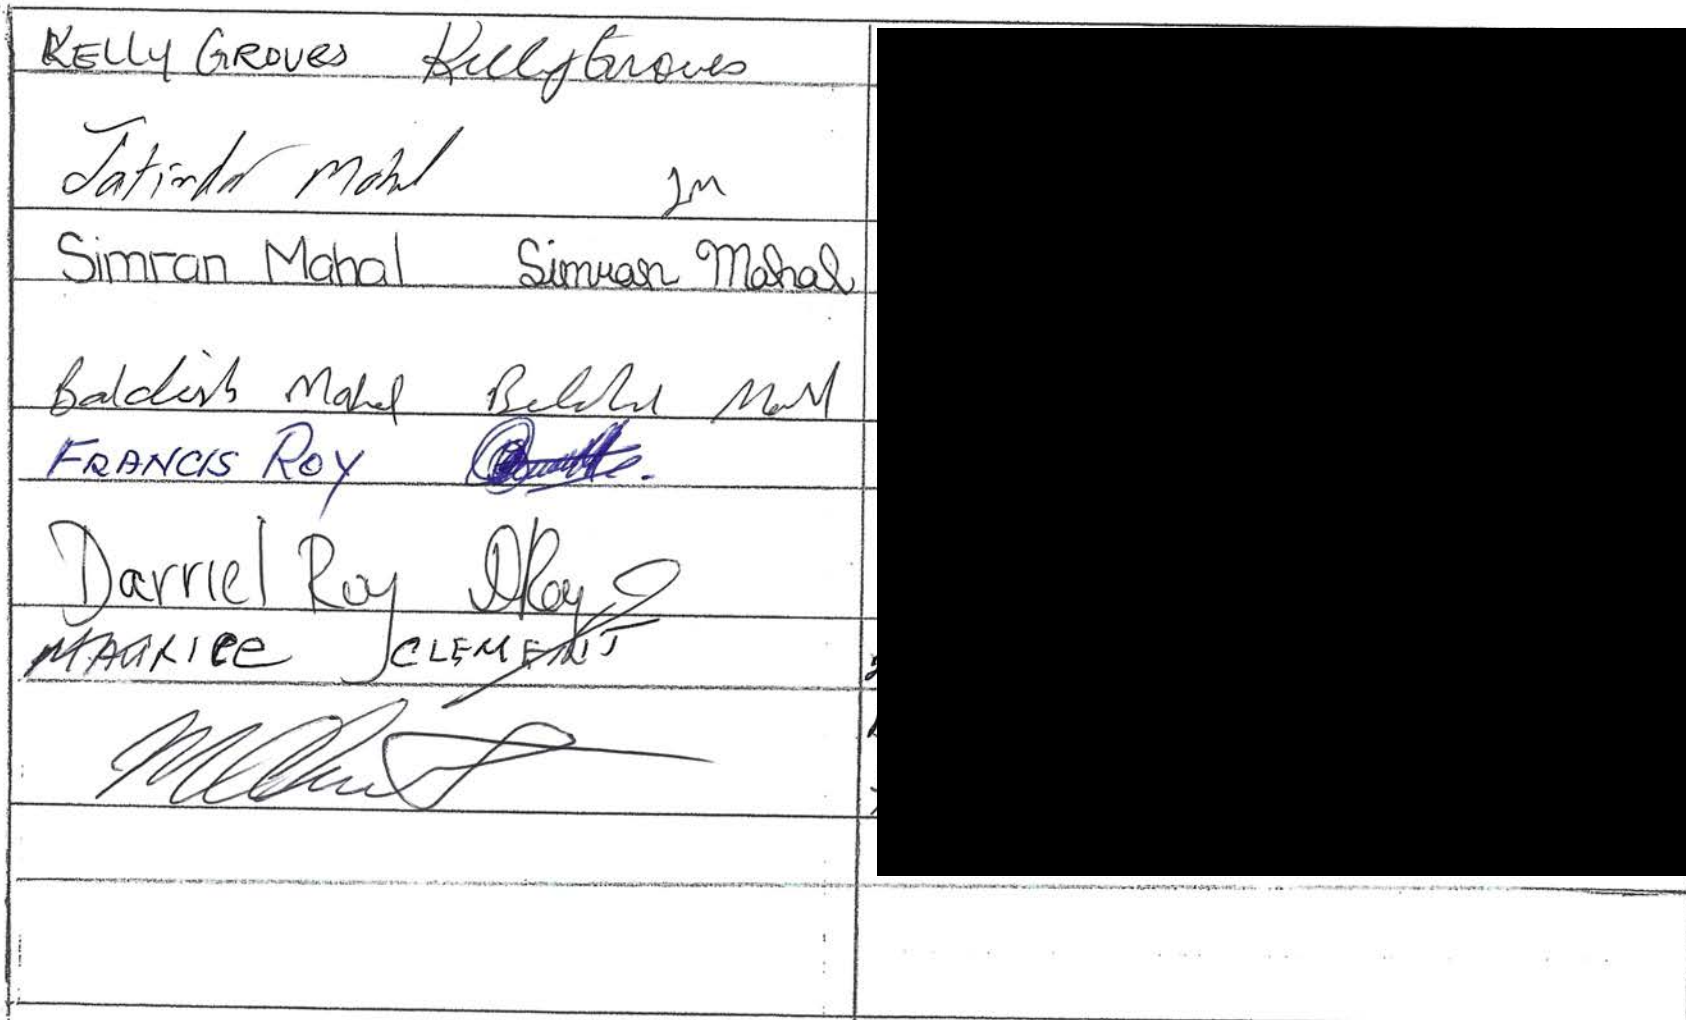 KELLY GROVES Kelly Groves
Jatinder Mahl JM
Simran Mahal Simran Mahal
Mahal
FRANCIS ROY
Darriel Roy DRoy
MAURICE CLEMENT